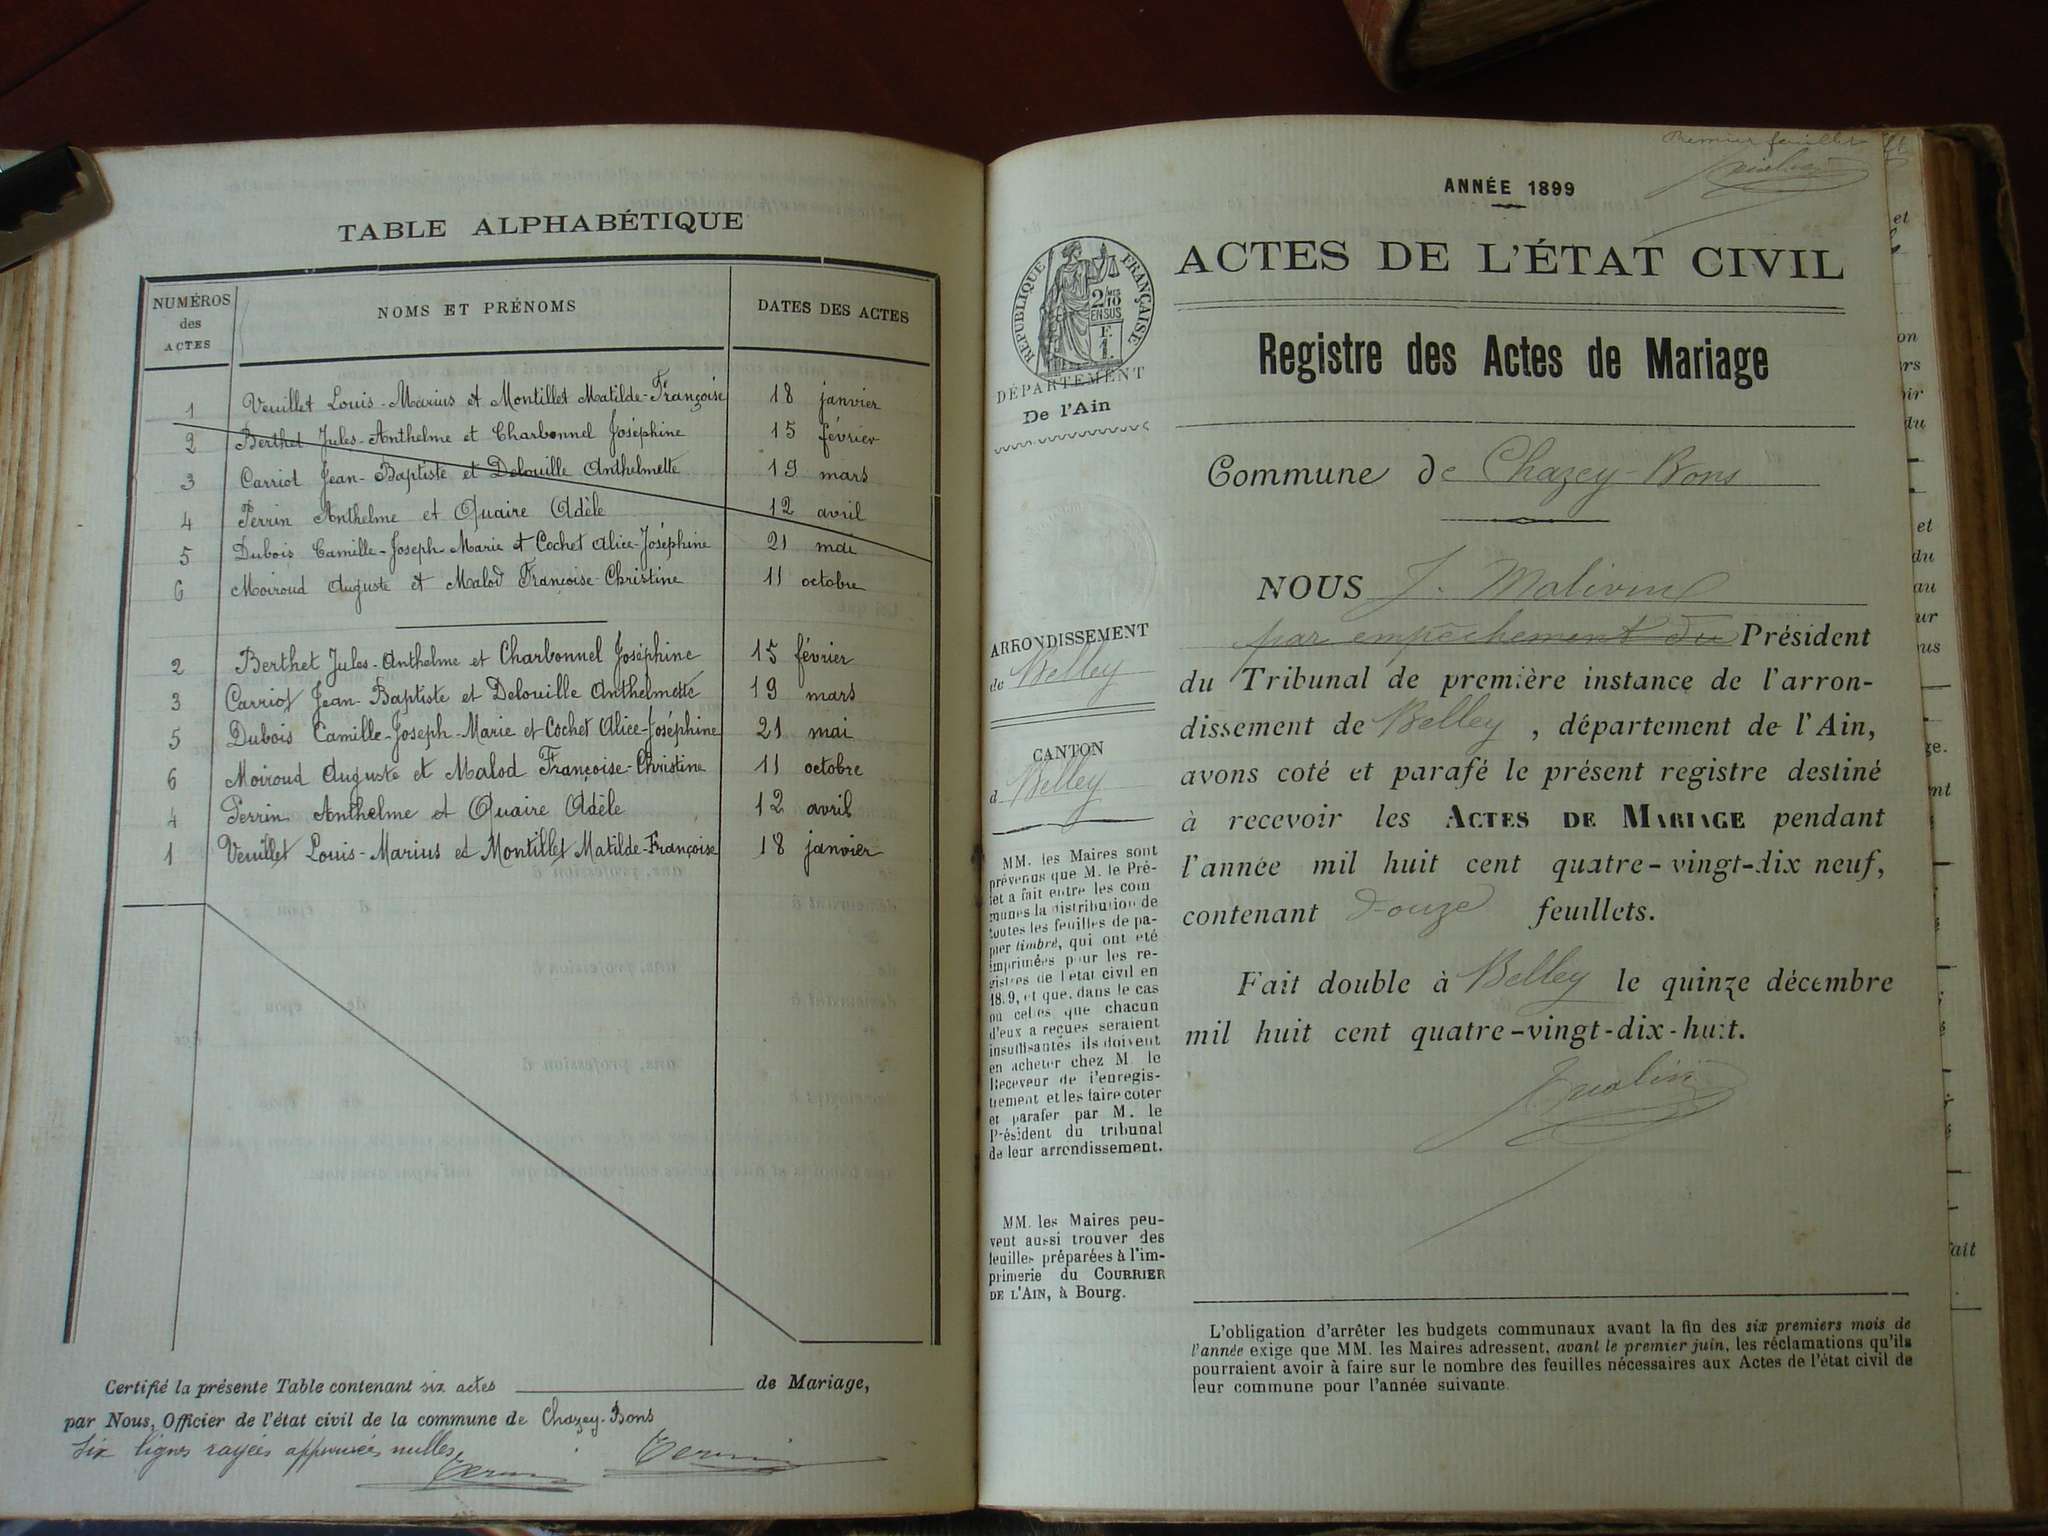 TABLE ALPHABÉTIQUE
NUMÉROS des ACTES NOMS ET PRÉNOMS DATES DES ACTES
1 Veuillet Louis-Marius et Montillet Matilde-Françoise 18 janvier
2 Berthet Jules-Anthelme et Charbonnel Joséphine 15 février
3 Carriot Jean-Baptiste et Delouille Anthelmette 19 mars
4 Perrin Anthelme et Quaire Adèle 12 avril
5 Dubois Camille-Joseph-Marie et Cochet Alice-Joséphine 21 mai
6 Moiroud Auguste et Malod Françoise-Christine 11 octobre
2 Berthet Jules-Anthelme et Charbonnel Joséphine 15 février
3 Carriot Jean-Baptiste et Delouille Anthelmette 19 mars
5 Dubois Camille-Joseph-Marie et Cochet Alice-Joséphine 21 mai
6 Moiroud Auguste et Malod Françoise-Christine 11 octobre
4 Perrin Anthelme et Quaire Adèle 12 avril
1 Veuillet Louis-Marius et Montillet Matilde-Françoise 18 janvier
Certifié la présente Table contenant six actes de Mariage,
par Nous, Officier de l'état civil de la commune de Chazey-Bons
Six lignes rayées approuvées nulles
Premier feuillet
ANNÉE 1899
RÉPUBLIQUE FRANÇAISE
2/10 EN SUS
F 1.
DÉPARTEMENT
De l'Ain
ACTES DE L'ÉTAT CIVIL
Registre des Actes de Mariage
Commune de Chazey-Bons
ARRONDISSEMENT
de Belley
CANTON
d Belley
MM. les Maires sont
prévenus que M. le Pré-
fet a fait entre les com
munes la distribution de
toutes les feuilles de pa-
pier timbré, qui ont été
imprimées pour les re-
gistres de l'état civil en
18.9, et que, dans le cas
ou celles que chacun
d'eux a reçues seraient
insuffisantes ils doivent
en acheter chez M. le
Receveur de l'enregis-
trement et les faire coter
et parafer par M. le
Président du tribunal
de leur arrondissement.
MM. les Maires peu-
vent aussi trouver des
feuilles préparées à l'im-
primerie du COURRIER
DE L'AIN, à Bourg.
NOUS J.
par empêchement du Président
du Tribunal de première instance de l'arron-
dissement de Belley, département de l'Ain,
avons coté et parafé le présent registre destiné
à recevoir les ACTES DE MARIAGE pendant
l'année mil huit cent quatre-vingt-dix neuf,
contenant douze feuillets.
Fait double à Belley le quinze décembre
mil huit cent quatre-vingt-dix-huit.
L'obligation d'arrêter les budgets communaux avant la fin des six premiers mois de
l'année exige que MM. les Maires adressent, avant le premier juin, les réclamations qu'ils
pourraient avoir à faire sur le nombre des feuilles nécessaires aux Actes de l'état civil de
leur commune pour l'année suivante.